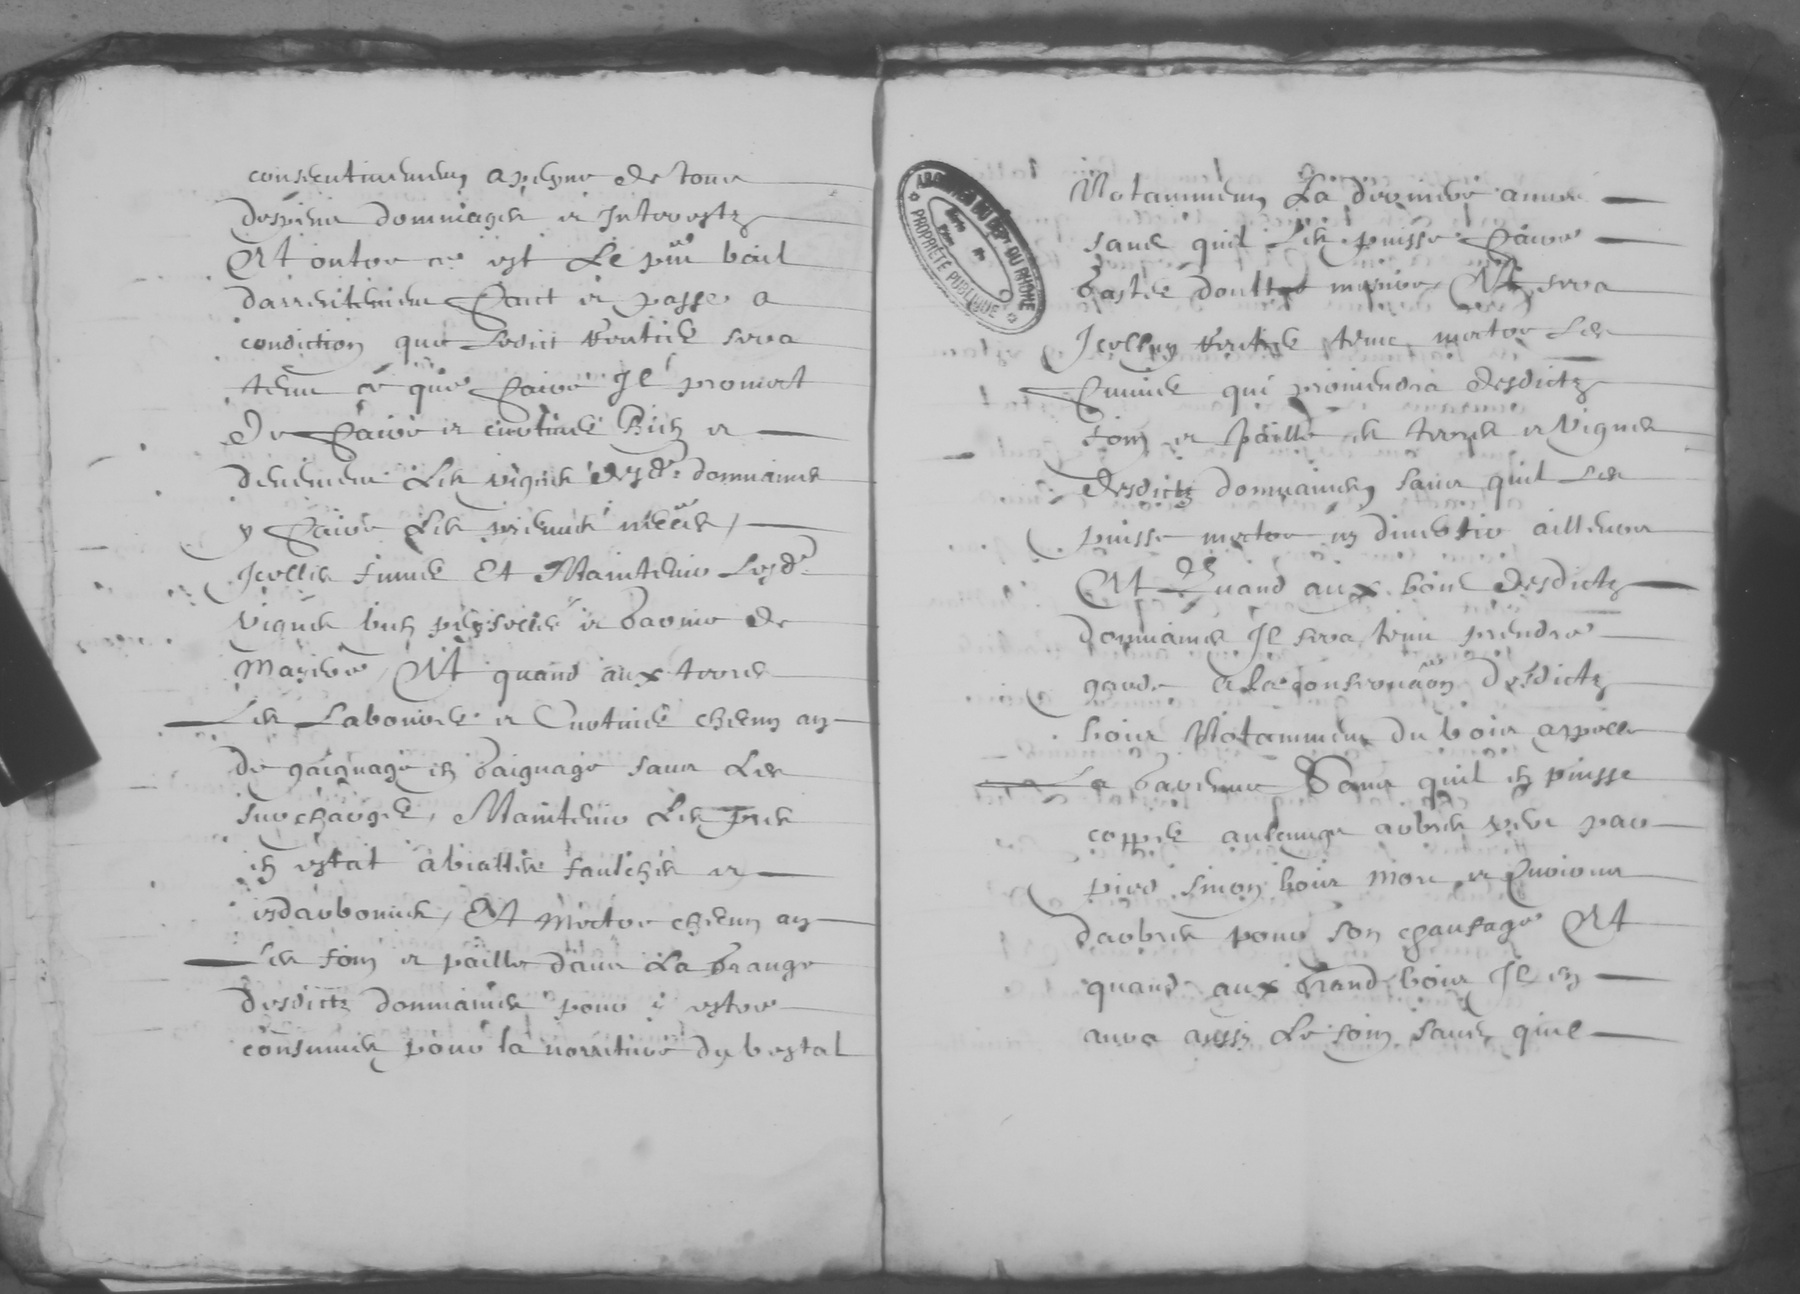 consentement a peyne de tous
despens dommages et Interestz
Et outre ce est Le pnt bail
darrentement faict et passe a
condiction que Ledict sera
tenu ce que faire Il promect
De faire et cultiver bien et
deuement Les vignes desd. dommaines
y faire Les
Icelles fumer Et Maintenir Lesd.
vignes bien et garnir de
Maniere Et quand aux terres
Les Labourer et Cultiver chacun an
De gaignage en gaignage sans Les
surcharger, Maintenir Les prés
en estat faulcher et
Et Mectre chacun an
Les foin et paille dans La grange
desdictz dommaines pour i estre
consumés pour la norriture du bestal
ARCHIVES DU DEPT DU RHONE
PROPRIÉTÉ PUBLIQUE
Notamment La derniere annee
sans quil Les puisse faire
gaster daultre maniere Et sera
Icelluy tenu mectre Les
fumier qui proviendra desdictz
foin et paille es terres et vignes
desdictz dommaines sans quil Les
puisse mectre ny divertir ailleurs
Et Quand aux bois desdictz
dommaines Il sera tenu prendre
garde a La conservaon desdictz
bois Notamment du bois appellé
La garenne Sans quil en puisse
copper aulcungs arbres par
pied sinon bois mort et
darbres pour son chaufage Et
quand aux grand bois Il en
aura aussy Le soin sans quil